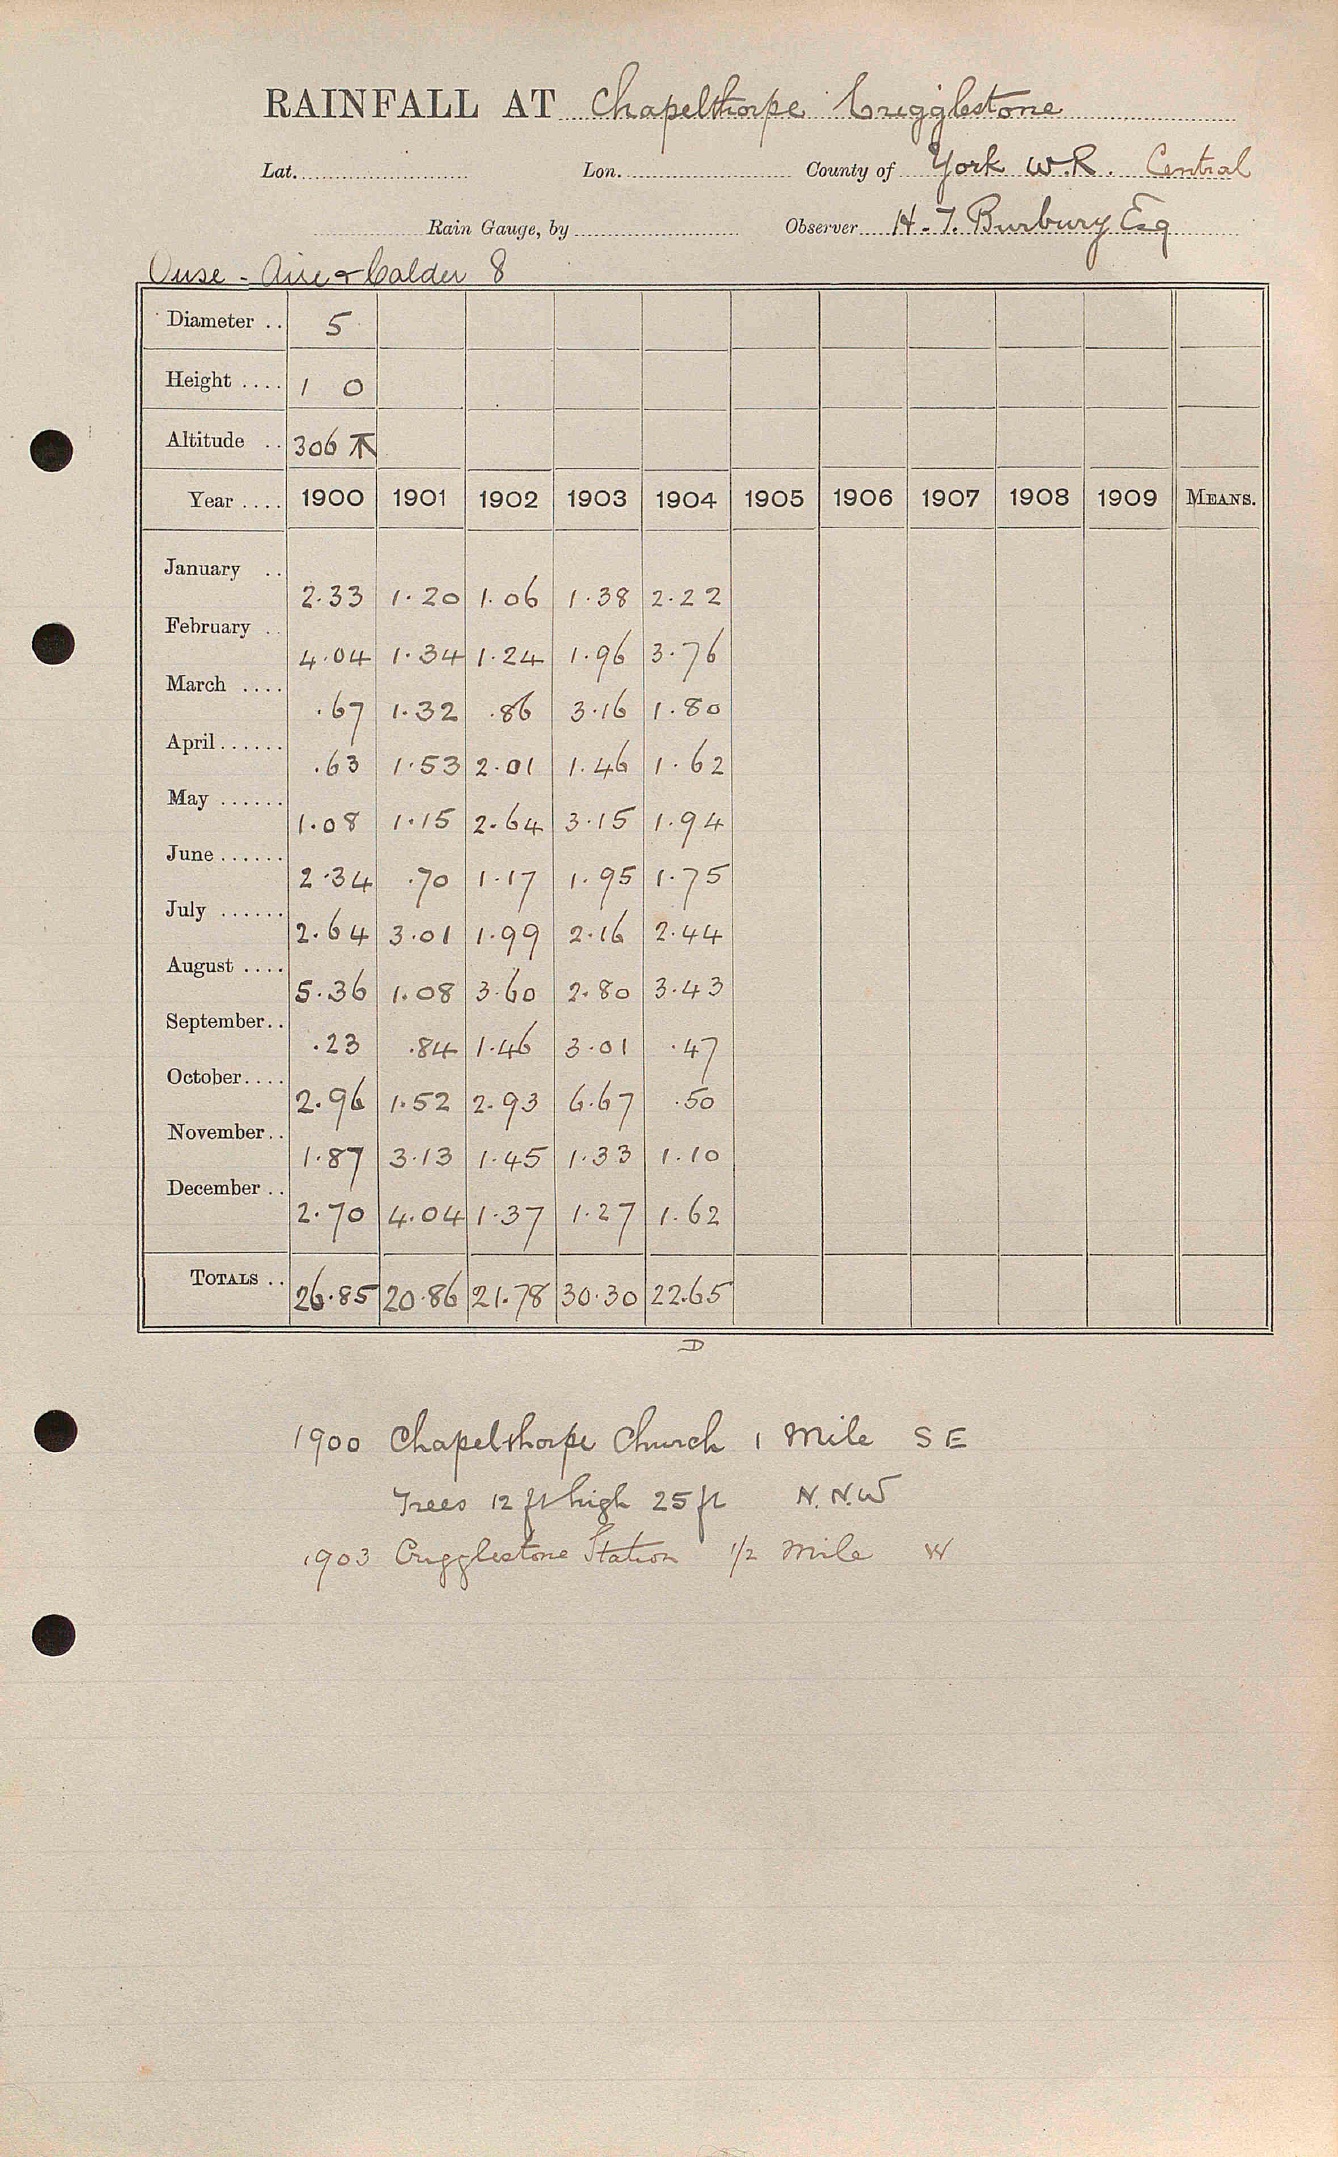 RAINFALL AT Chapelthorpe Crigglestone
Lat. Lon. County of York W.R. Central
Rain Gauge, by Observer H. T. Burbury Esq
Ouse - Aire & Calder 8
Diameter .. 5
Height .... 1 0
Altitude .. 306
Year .... 1900 1901 1902 1903 1904 1905 1906 1907 1908 1909 MEANS.
January .. 2.33 1.20 1.06 1.38 2.22
February .. 4.04 1.34 1.24 1.96 3.76
March .... .67 1.32 .86 3.16 1.80
April...... .63 1.53 2.01 1.46 1.62
May ...... 1.08 1.15 2.64 3.15 1.94
June ...... 2.34 .70 1.17 1.95 1.75
July ...... 2.64 3.01 1.99 2.16 2.44
August .... 5.36 1.08 3.60 2.80 3.43
September.. .23 .84 1.46 3.01 .47
October.... 2.96 1.52 2.93 6.67 .50
November.. 1.87 3.13 1.45 1.33 1.10
December .. 2.70 4.04 1.37 1.27 1.62
TOTALS .. 26.85 20.86 21.78 30.30 22.65
D
1900 Chapelthorpe Church 1 Mile S E
Trees 12 ft high 25 ft N.N.W
1903 Crigglestone Station 1/2 Mile W